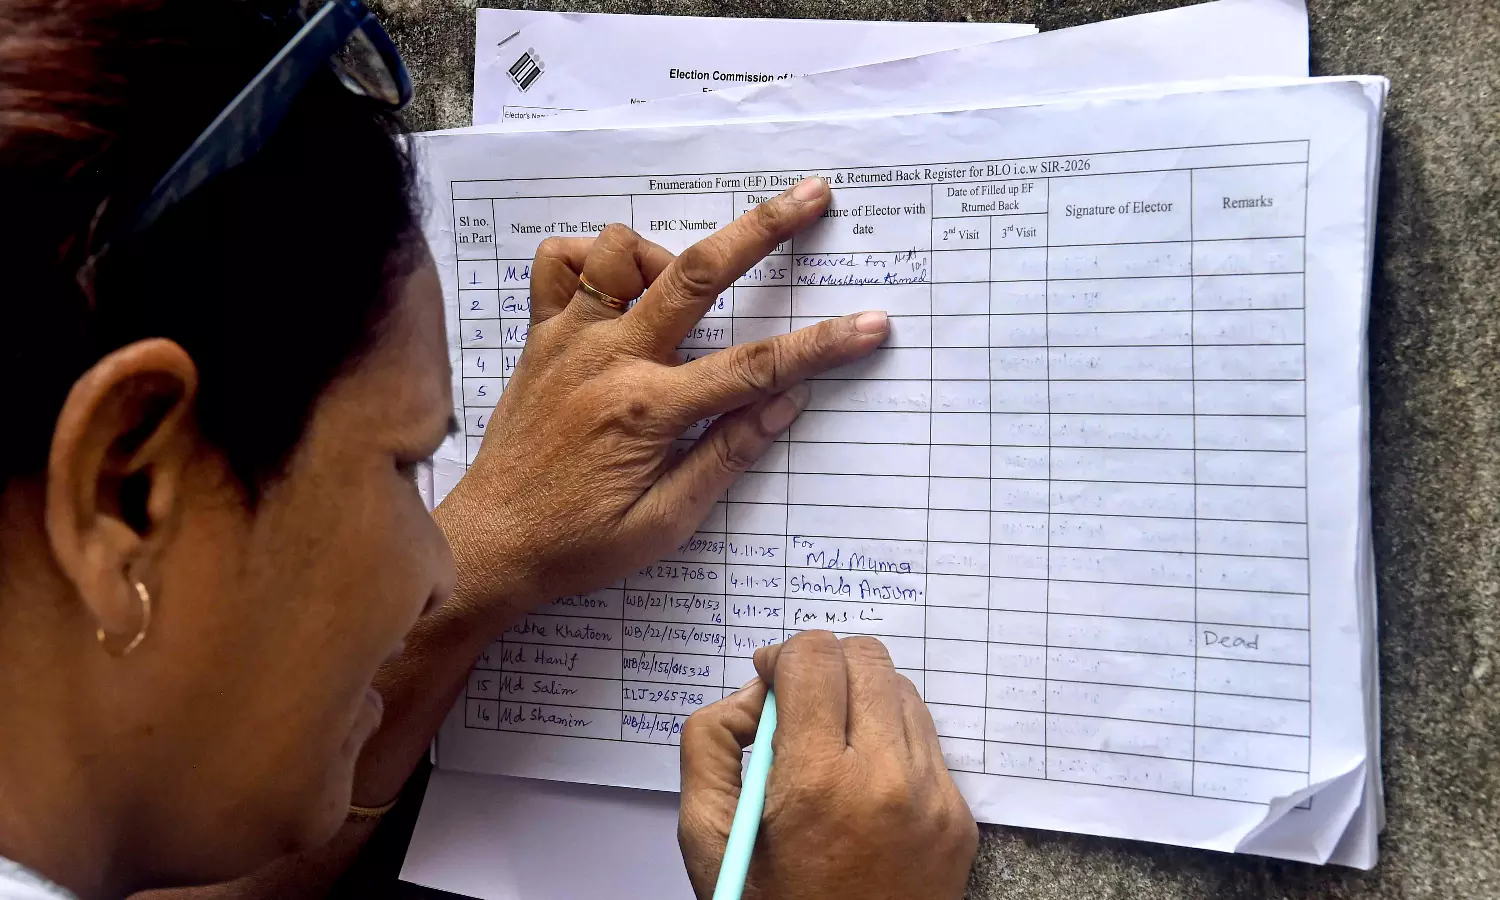 Election Commission of
Elector's Name
Enumeration Form (EF) Distribution & Returned Back Register for BLO i.c.w SIR-2026
Sl no. in Part
Name of The Elector
EPIC Number
Date of
Signature of Elector with date
Date of Filled up EF Rturned Back
2nd Visit
3rd Visit
Signature of Elector
Remarks
1 Md 11.25 received for
Md. Mushtaque Ahmed
2 18
3 Md 015471
4 H
5
6
699287 4.11.25 For
Md. Munna
2717080 4.11.25 Shahla Anjum.
Khatoon WB/22/156/0153 16 4.11.25 for M.S.
Khatoon WB/22/156/015187 4.11.25 Dead
14 Md Hanif WB/22/156/015328
15 Md Salim ILJ2965788
16 Md Shamim WB/22/156/01